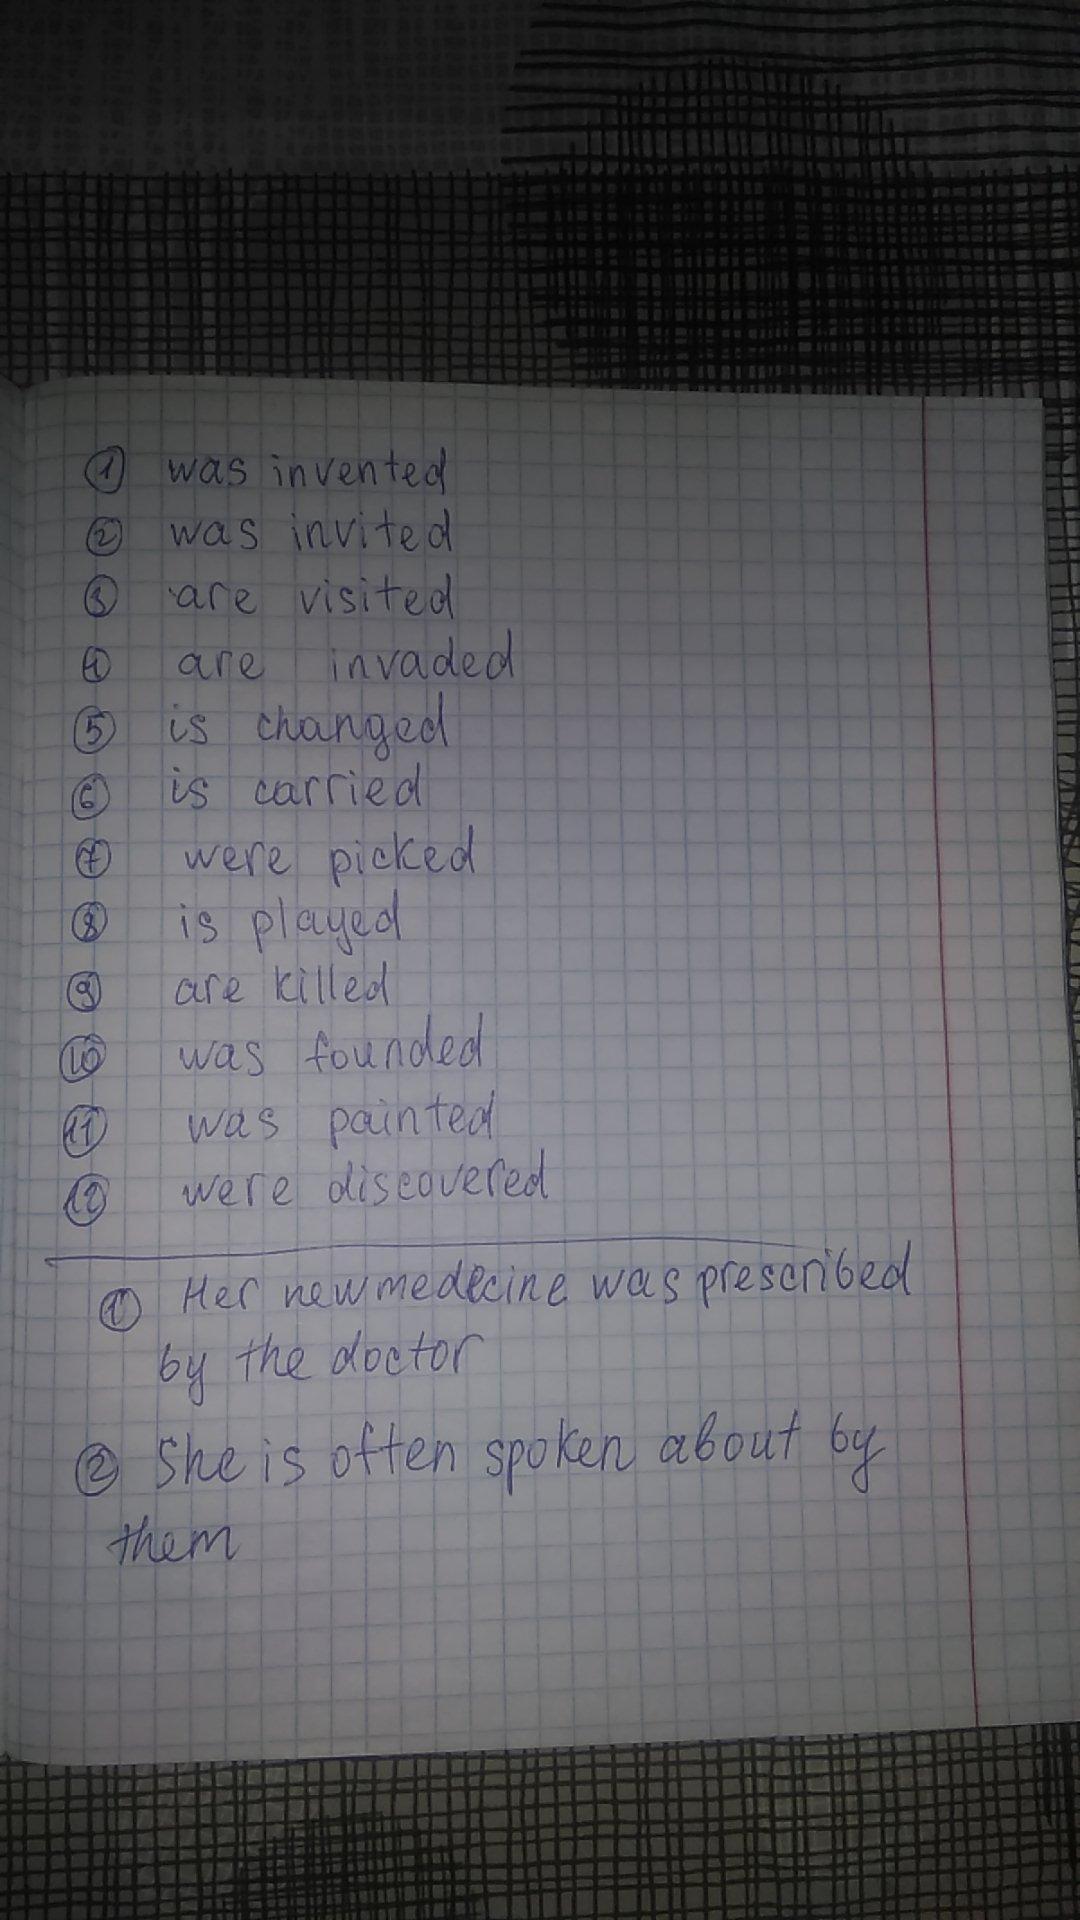 1 was invented
2 was invited
3 are visited
4 are invaded
5 is changed
6 is carried
7 were picked
8 is played
9 are killed
10 was founded
11 was painted
12 were discovered
1 Her new medecine was prescribed
by the doctor
2 She is often spoken about by
them